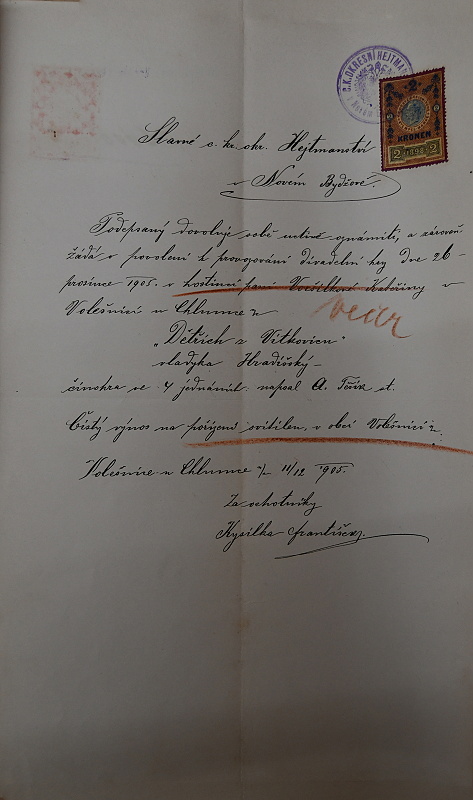 C. K. OKRESNÍ HEJTMAN
2
KRONEN
2 1898 2
Slavné c. kr. okr. Hejtmanství
v Novém Bydžově.
Podepsaný dovoluje sobě uctivě oznámiti, a zároveň
žádá o povolení k provozování divadelní hry dne 26
prosince 1905. v hostinci paní Kateřiny v
Volešnici u Chlumce n
večer
"Dětřich z Vítkovicu"
vladyka Hradišský
činohra ve 4 jednáních napsal A. st.
Čistý výnos na pořízení svítilen, v obci Volešnici
Volešnice u Chlumce n/c 11/12 1905.
Za ochotníky
Kysilka František